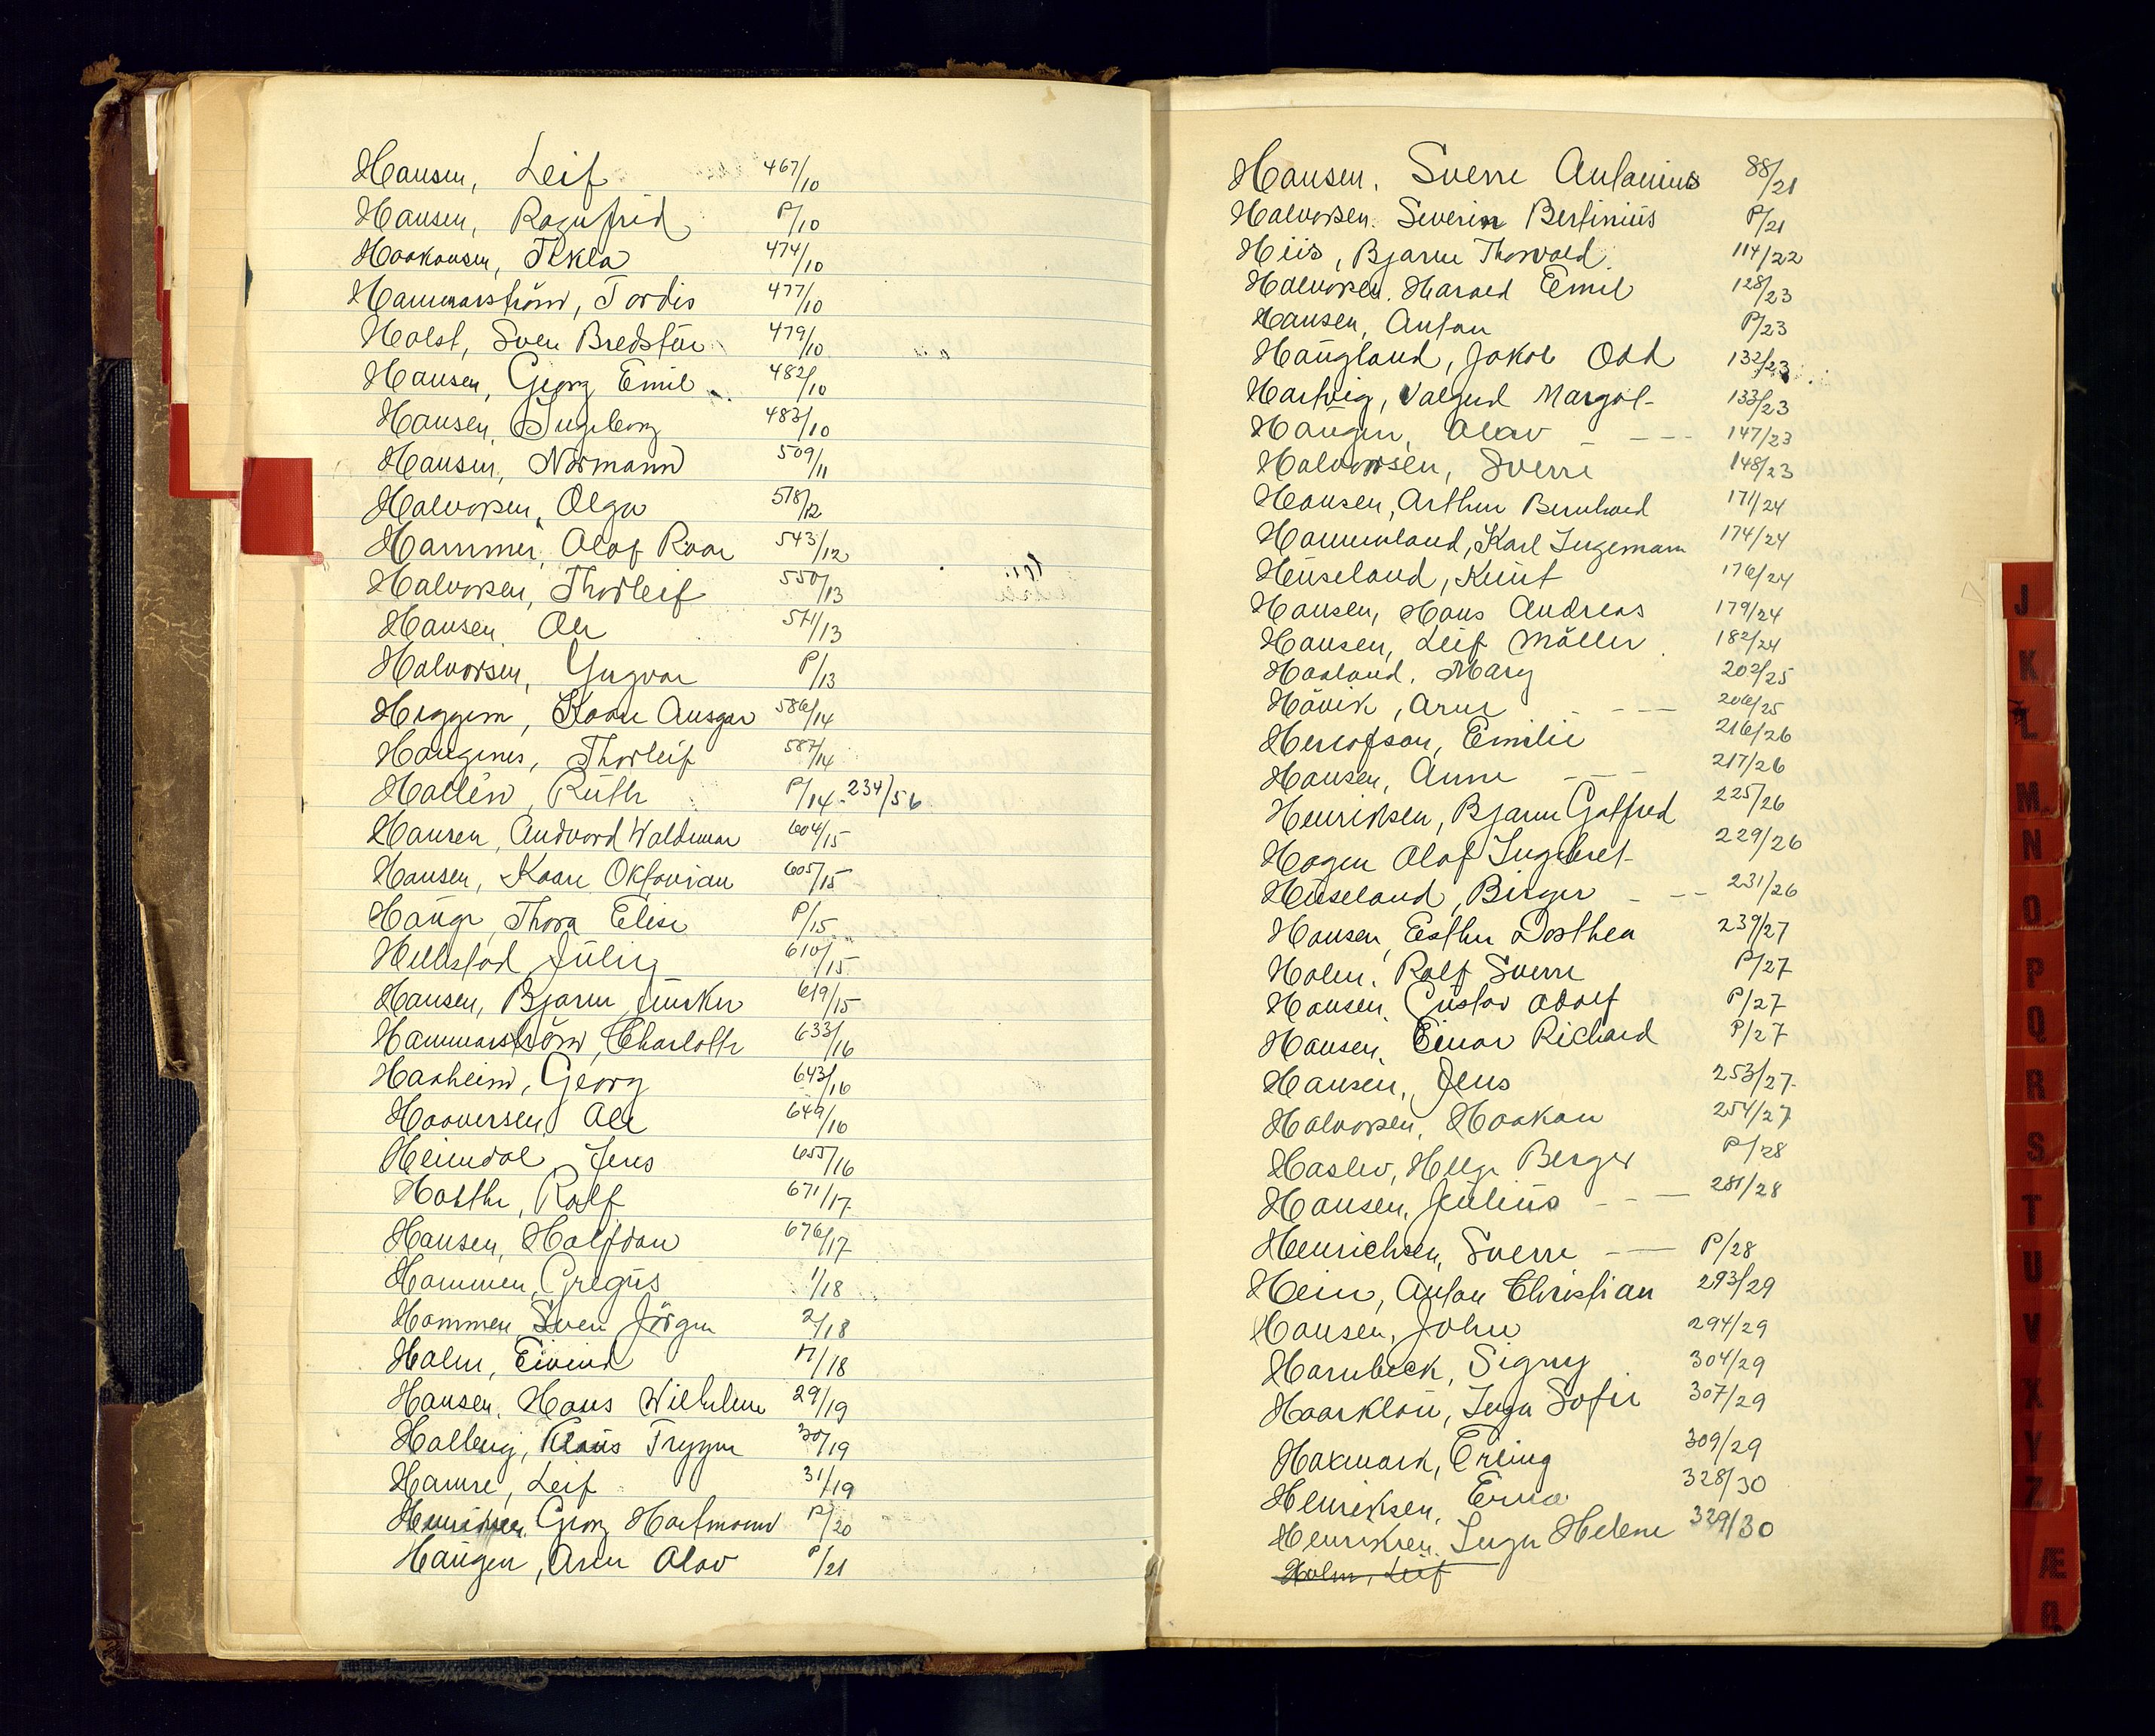 Hansen, Leif 467/10
Hansen, Ragnfrid P/10
Haakonsen, Tekla 474/10
Hammarström, Tordis 477/10
Holst, Sven Bredstør 479/10
Hansen, Georg Emil 482/10
Hansen, Ingeborg 483/10
Hansen, Normann 509/11
Halvorsen, Olga 518/12
Hammer, Olaf Roar 543/12
Halvorsen, Thorleif 550/13
Hansen, Ole 571/13
Halvorsen, Yngvar P/13
Heggem, Kaare Ansgar 586/14
Haugnes, Thorleif 587/14
Hallén, Ruth P/14 - 234/56
Hansen, Andvord Waldemar 604/15
Hansen, Kaare Oktavian 605/15
Hauge, Thora Elise P/15
Hellestad, Julie 610/15
Hansen, Bjarne Junker 619/15
Hammarström, Charlotte 633/16
Hanheim, Georg 643/16
Haaversen, Ole 649/16
Heimdal, Jens 655/16
Holthe, Rolf 671/17
Hansen, Halfdan 676/17
Hammen, Gregus 1/18
Hammen, Sven Jörgen 2/18
Holm, Eivind 17/18
Hansen, Hans Wilhelm 29/19
Halberg, Klaus Trygve 30/19
Hamre, Leif 31/19
Henriksen, Georg Hartmann P/20
Haugen, Arne Olav P/21
Hansen, Sverre Antonius 88/21
Halvorsen, Severin Bertinius P/21
Hiis, Bjarne Thorvald 114/22
Halvorsen, Harald Emil 128/23
Hansen, Anton P/23
Haugland, Jakob Odd 132/23
Hartvig, Valgerd Margot 133/23
Haugen, Olav - --- 147/23
Halvorsen, Sverre 148/23
Hansen, Arthur Bernhard 171/24
Hammerland, Karl Ingemann 174/24
Huseland, Knut 176/24
Hansen, Hans Andreas 179/24
Hansen, Leif Möller 182/24
Haaland, Mary 202/25
Hövik, Arne - --- 206/25
Herlofson, Emilie 216/26
Hansen, Anne - -- 217/26
Henriksen, Bjarne Gotfred 225/26
Hagen Olaf Ingebret 229/26
Huseland, Birger - -- 231/26
Hansen, Esther Dorthea 239/27
Holm, Rolf Sverre P/27
Hansen, Gustav Adolf P/27
Hansen, Einar Richard P/27
Hansen, Jens 253/27
Halvorsen, Haakon 254/27
Haslev, Helge Berger P/28
Hansen, Julius - - - 281/28
Henrichsen, Sverre - - P/28
Hein, Anton Christian 293/29
Hansen, John 294/29
Harnbeck, Signy 304/29
Haarklau, Inga Sofie 307/29
Haxmark, Erling 309/29
Henriksen, Erna 328/30
Henriksen, Inga Helene 329/30
Holm, Leif
J
K
L
M
N
O
P
Q
R
S
T
U
V
X
Y
Z
Æ
Ø